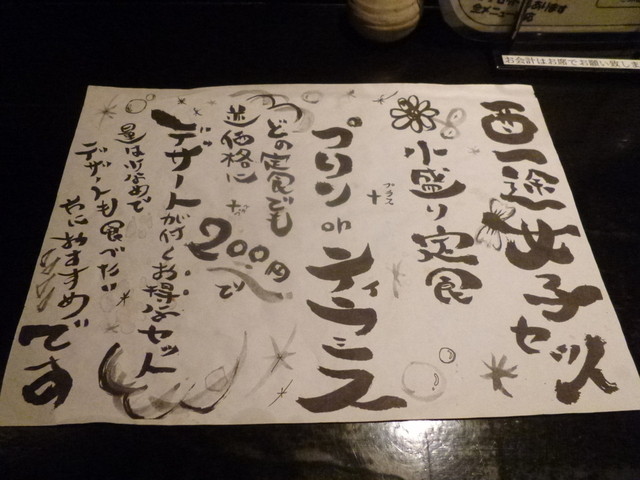 酉一途女子セット
小盛り定食
+
プラス
プリン or ティラミス
どの定食でも
通常価格に
+
200円で
デザートが付くお得なセット
量は少なめで
デザートも食べたい方におすすめです
お会計はお席でお願い致しま